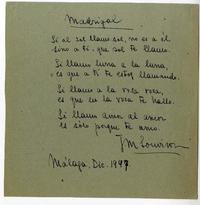 Madrigal
Si al sol llamo sol, no es a él
sino a ti, que sol te llamo.
Si llamo luna a la luna,
es que a ti te estoy llamando.
Si llamo a la rosa rosa,
es que en la rosa te hallo.
Si llamo amor al amor
es sólo porque te amo.
JM Souviron
Málaga, Dic. 1947